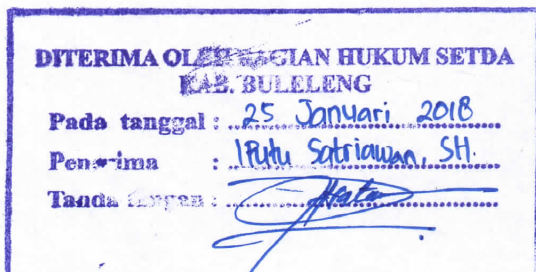 DITERIMA OLEH BAGIAN HUKUM SETDA
KAB. BULELENG
Pada tanggal : 25 Januari 2018
Penerima : I Putu Satriawan, SH.
Tanda tangan :